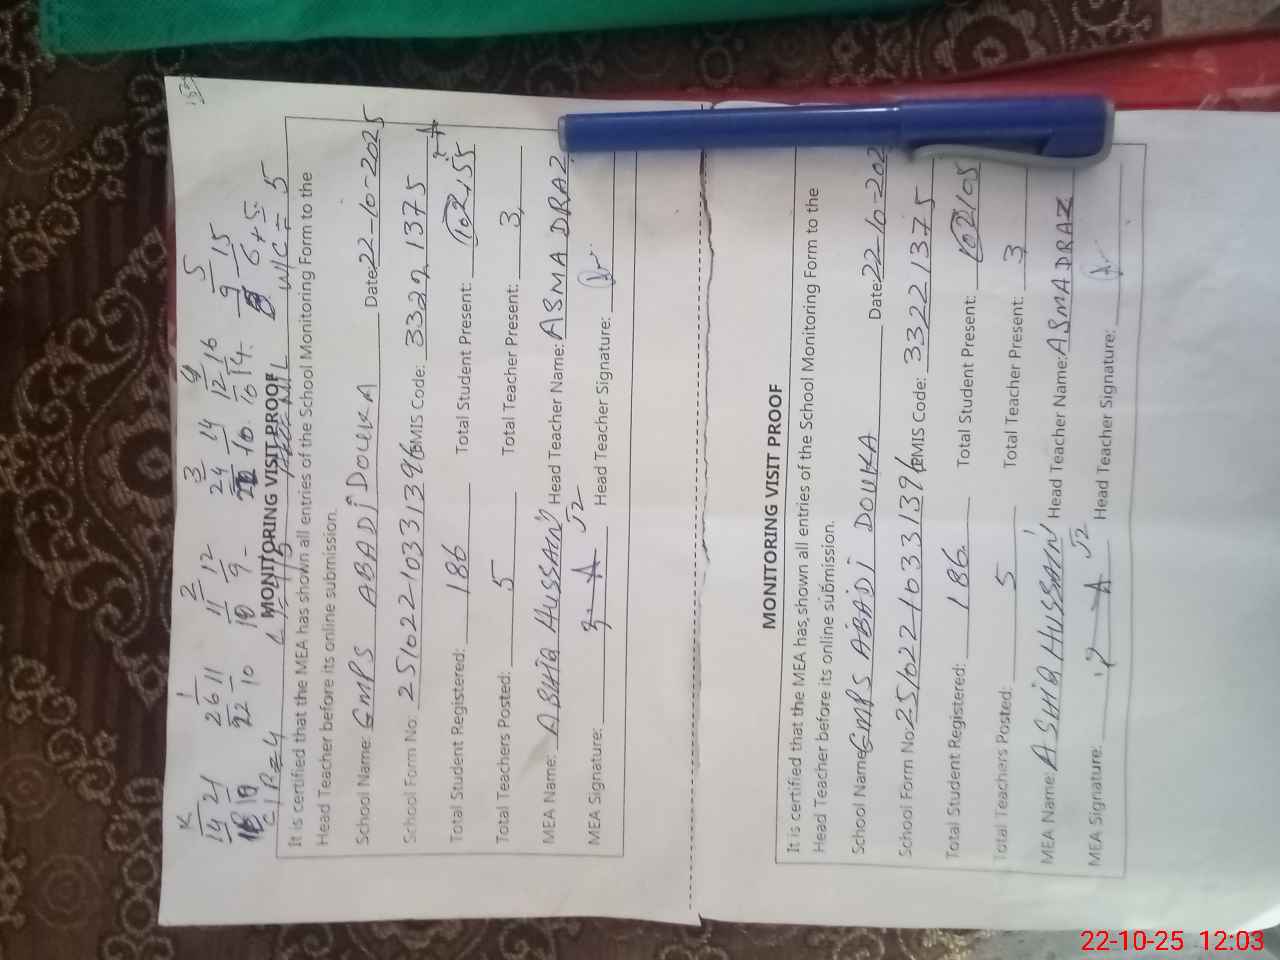 K 1 2 3 4 5
14 21 26 11 11 12 24 14 12 16 9 15
22 10 10 9 10 10 14 6+5
C/R=4 NIL W/C = 5
MONITORING VISIT PROOF
It is certified that the MEA has shown all entries of the School Monitoring Form to the
Head Teacher before its online submission.
School Name: GMPS ABADI DOULKA Date 22-10-2025
School Form No: 251022-10331396 EMIS Code: 33221375
Total Student Registered: 186 Total Student Present:
Total Teachers Posted: 5 Total Teacher Present: 3
MEA Name: ASHIQ HUSSAIN Head Teacher Name: ASMA DRAZ
MEA Signature: Head Teacher Signature:
MONITORING VISIT PROOF
It is certified that the MEA has shown all entries of the School Monitoring Form to the
Head Teacher before its online submission.
School Name GMPS ABADI DOULKA Date 22-10-202
School Form No: 251022-10331396 EMIS Code: 33221375
Total Student Registered: 186 Total Student Present: 105
Total Teachers Posted: 5 Total Teacher Present: 3
MEA Name: ASHIQ HUSSAIN Head Teacher Name: ASMA DRAZ
MEA Signature: Head Teacher Signature:
22-10-25 12:03